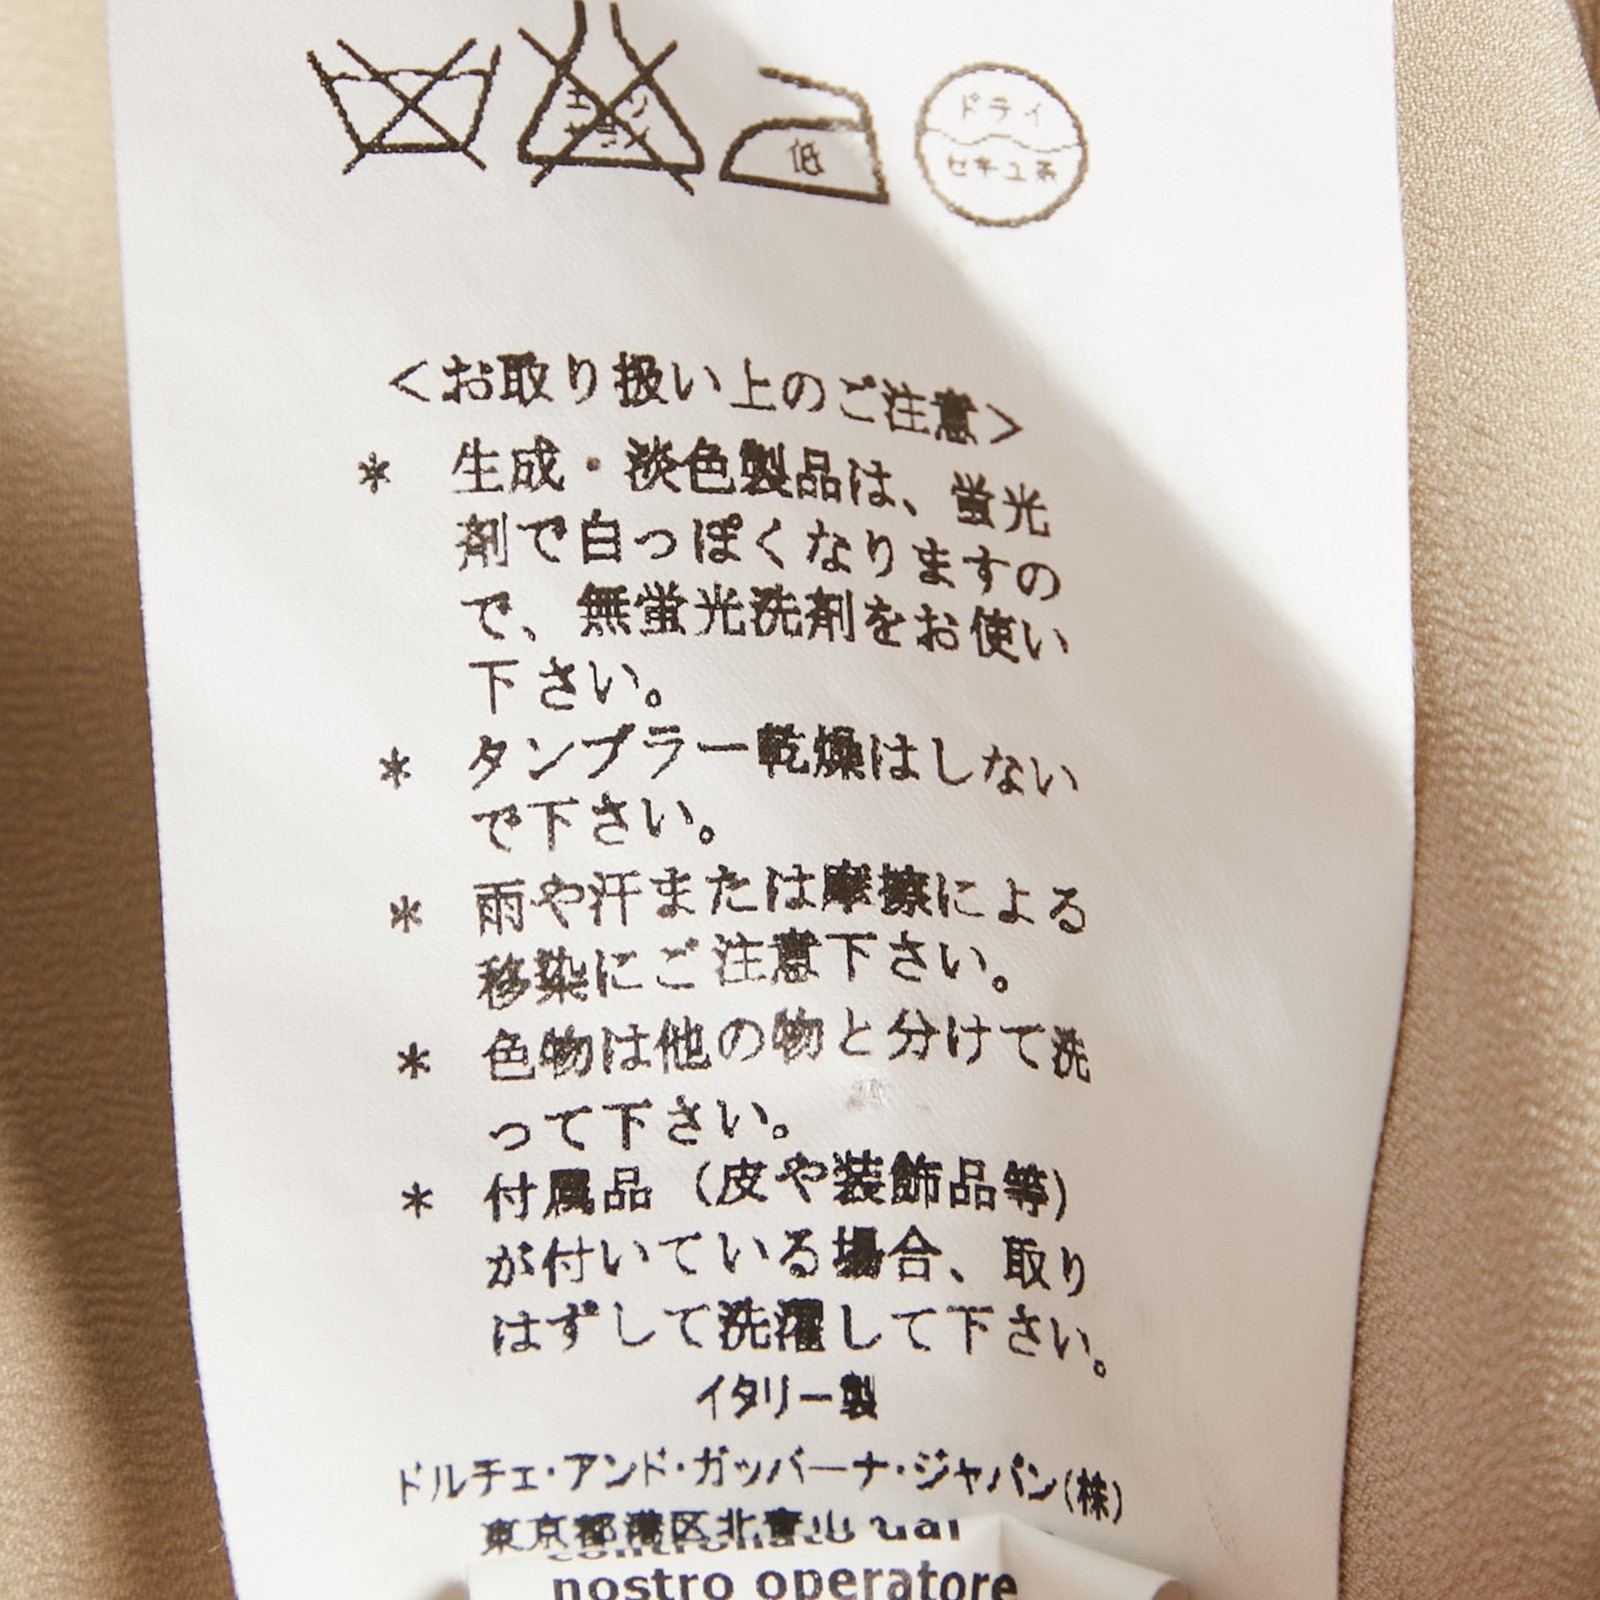 エンソ
サラシ
低
ドライ
セキユ系
<お取り扱い上のご注意>
* 生成・淡色製品は、蛍光
剤で白っぽくなりますの
で、無蛍光洗剤をお使い
下さい。
* タンブラー乾燥はしない
で下さい。
* 雨や汗または摩擦による
移染にご注意下さい。
* 色物は他の物と分けて洗
って下さい。
* 付属品(皮や装飾品等)
が付いている場合、取り
はずして洗濯して下さい。
イタリー製
ドルチェ・アンド・ガッバーナ・ジャパン(株)
東京都港区北青山
controllato dal
nostro operatore